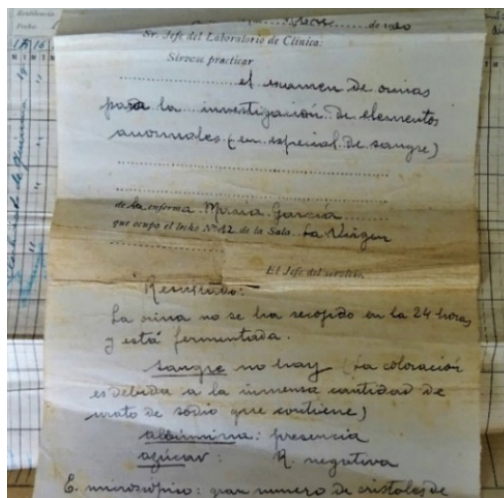 de 19
Sr. Jefe del Laboratorio de Clínica:
Sírvase practicar
el examen de orinas
para la investigación de elementos
anormales (en especial de sangre)
de la enferma María García
que ocupa el lecho Nº 12 de la Sala La Virgen
El Jefe del servicio,
Resultado:
La orina no se ha recogido en la 24 horas,
y está fermentada.
Sangre no hay (La coloración
es debida a la inmensa cantidad de
urato de sodio que contiene)
albúmina: presencia
azúcar: R negativa
E. microscópico: gran numero de cristales de